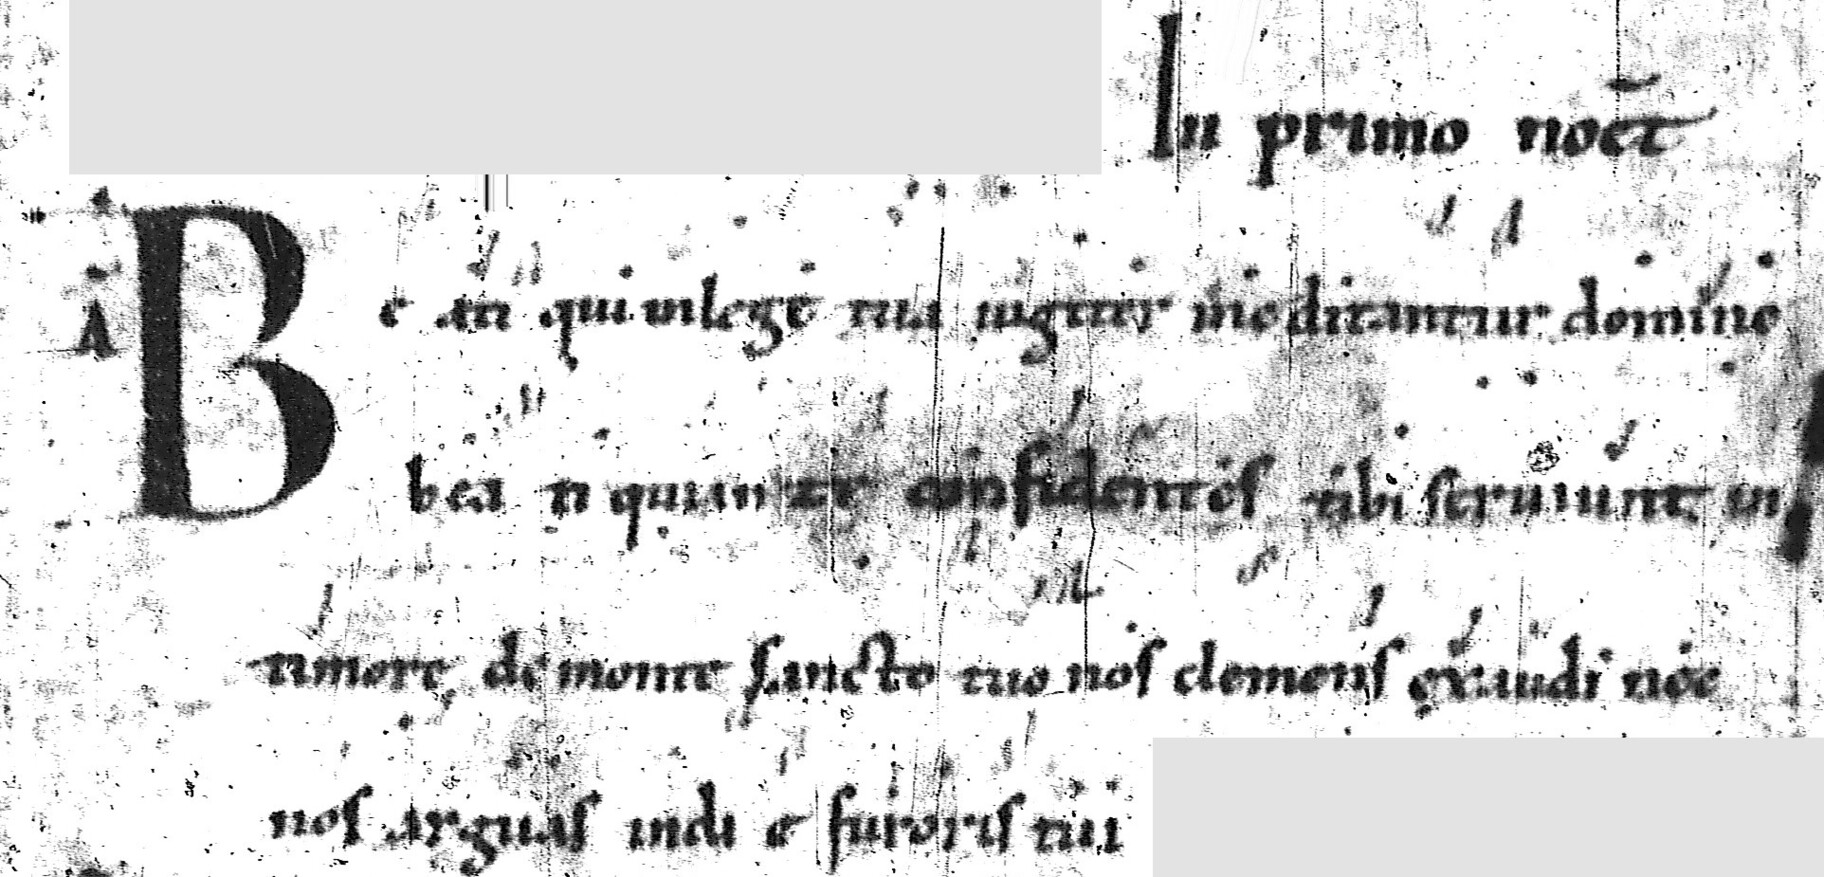 In primo noct̄
A Be an qui in lege tua iugiter meditantur domine
bea n quia in te confidentes tibi seruiunt in
timore de monte sancto tuo nos clemens exaudi nec
nos arguas in die furoris tui